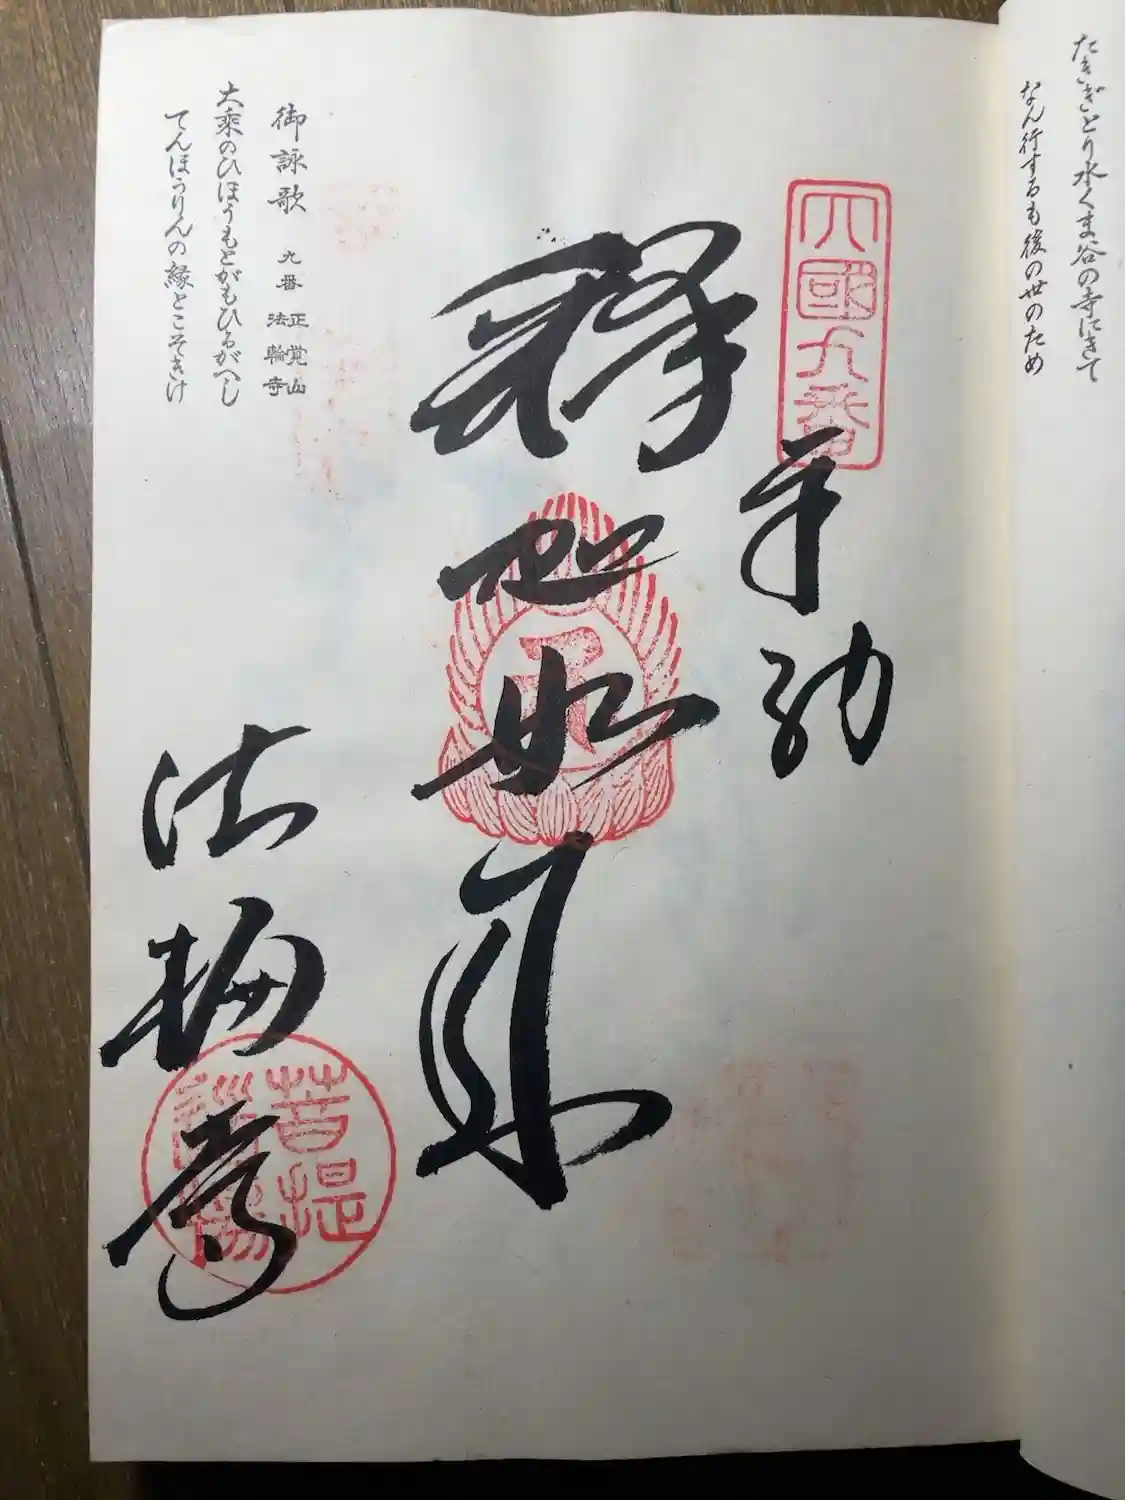 たきぎとり水くま谷の寺にきて
なん行するも後の世のため
四國九番
奉納
釋迦如来
法輪寺
菩提
御詠歌 九番 正覚山 法輪寺
大乘のひほうもとがもひるがへし
てんほうりんの縁とこそきけ